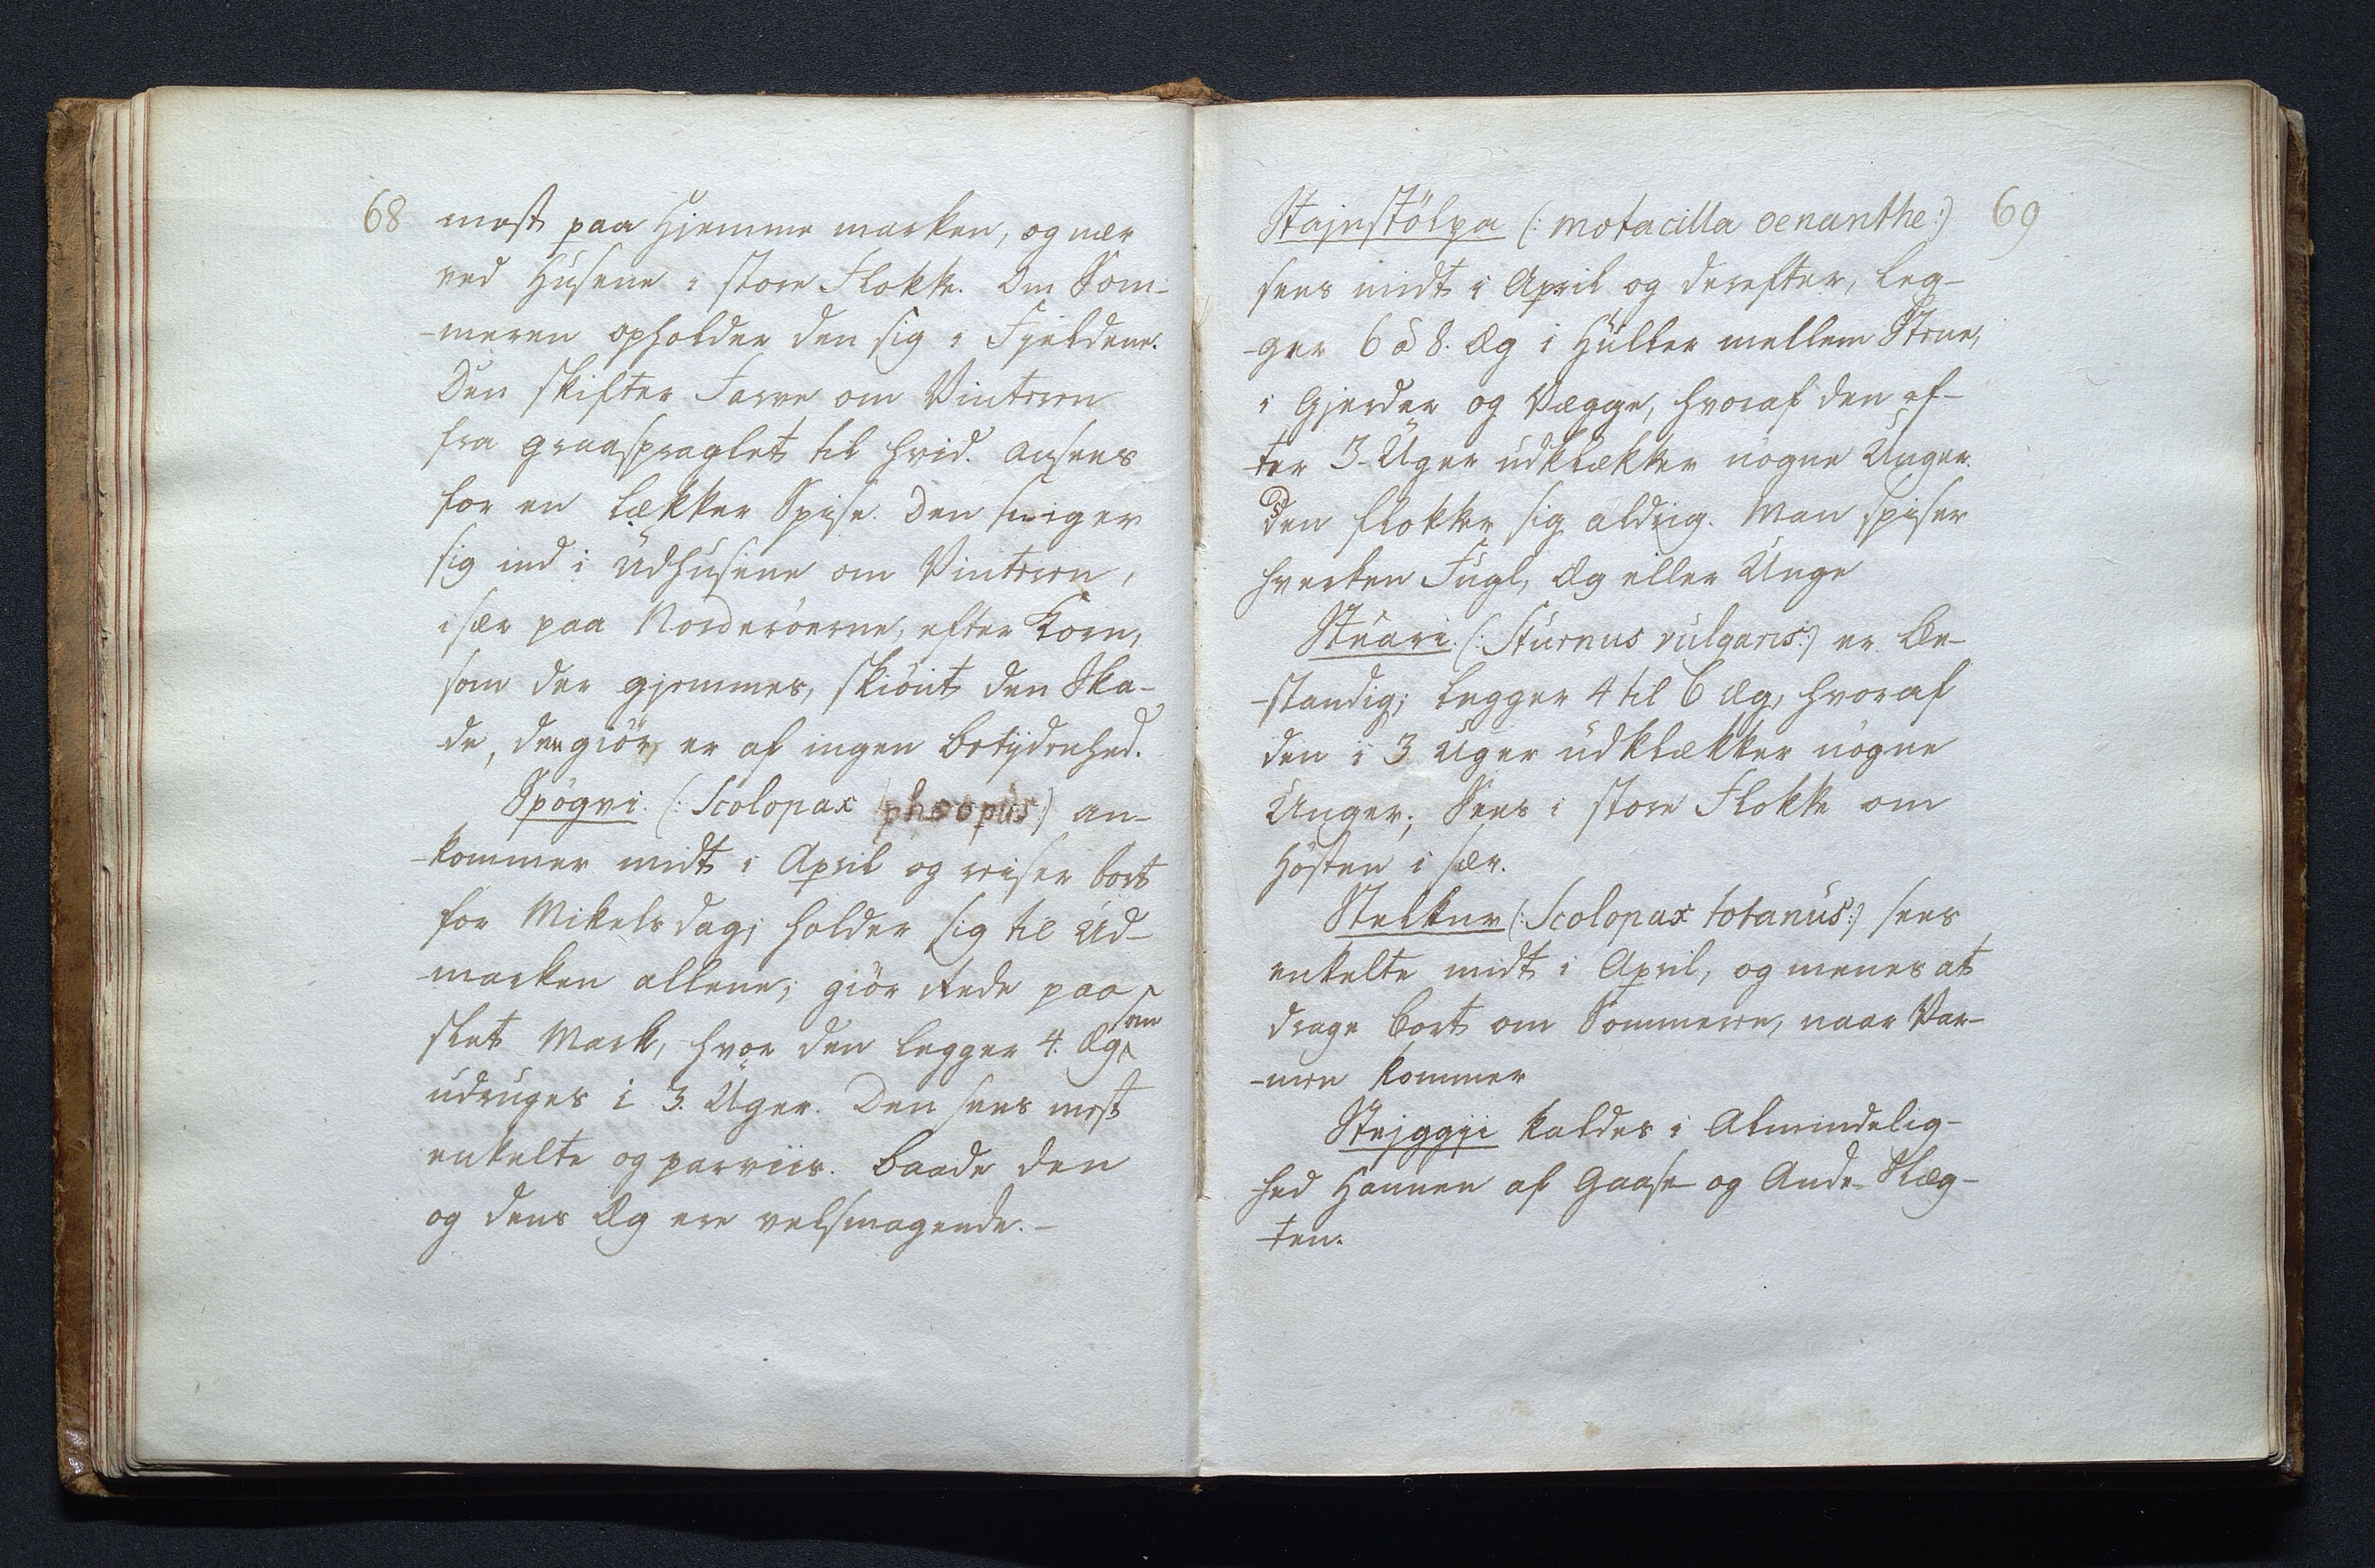 68
mest paa Hjemme marken, og nær
ved Husene i store Flokke. Om Som-
-meren opholder den sig i Fjeldene.
Den skifter Farve om Vinteren
fra graaspraglet til hvid. ansees
for en lækker Spise. Den sniger
sig ind i Udhusene om Vinteren,
især paa Norderöerne, efter Korn,
som der gjemmes, skiönt den Ska-
de, den giör, er af ingen betydenhed.
Spógvi. (: Scolopax phæopus:) an-
-kommer midt i April og reiser bort
for Mikelsdag; holder sig til Ud-
-marken allene; giör Rede paa
slet Mark, hvor den legger 4. Æg,
som
udruges i 3. Uger. Den sees mest
enkelte og parviis. baade den
og dens Æg ere velsmagende. -
69
Stajnstólpa (: motacilla oenanthe:)
sees midt i April og derefter, leg-
-ger 6 à 8. Æg i Huller mellem Stene,
i Gjerder og Vægge, hvoraf den ef-
-ter 3. Uger udklækker nögne Unger.
Den flokker sig aldrig. Man spiser
hverken Fugl, Æg eller Unge
Stuari. (: Sturnus vulgaris:) er be-
-standig; legger 4 til 6 Æg, hvoraf
den i 3 Uger udklækker nögne
Unger; Sees i store Flokke om
Hösten i sær.
Stelkur (: Scolopax totanus:) sees
enkelte midt i April, og menes at
drage bort om Sommeren, naar Var-
-men kommer
Stejggji kaldes i Almindelig-
-hed Hannen af Gaase- og Ande-Slæg-
-ten.